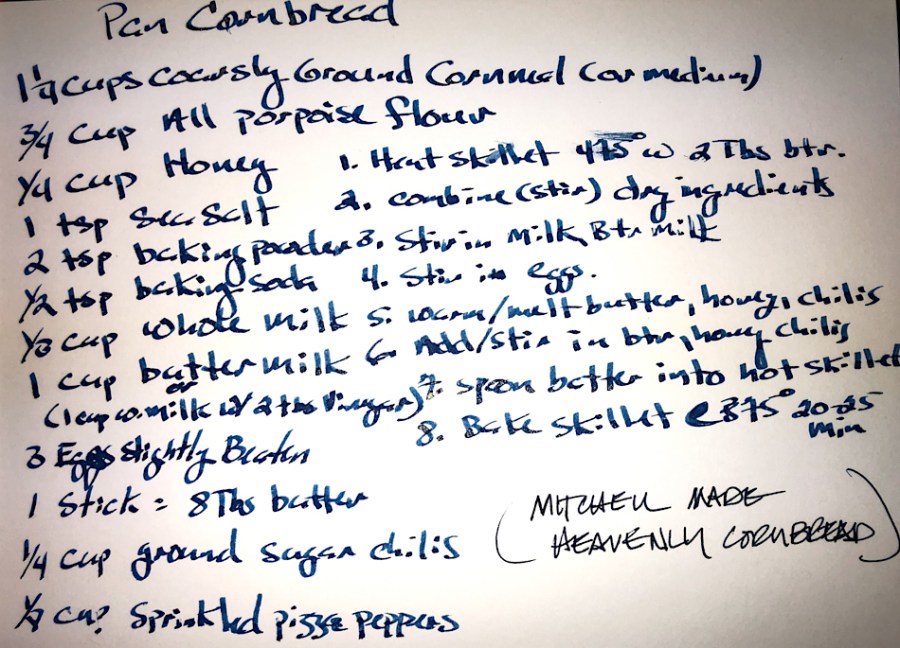 Pan Cornbread
1 1/4 cups coarsly Ground Cornmeal (or medium)
3/4 cup All porpoise flour
1/4 cup Honey
1 tsp Sea Salt
2 tsp baking powder
1/2 tsp baking soda
1/3 cup whole milk
1 cup buttermilk
or
(1 cup w. milk w/ 2 tbs Vinegar)
3 Eggs slightly Beaten
1 Stick = 8 Tbs butter
1/4 cup ground sugar chilis
cup Sprinkled pizza peppers
1. Heat skillet 475° w 2 Tbs btr.
2. combine (stir) dry ingredients
3. Stir in milk, Btr milk
4. Stir in eggs.
5. warm/melt butter, honey, chilis
6. Add/stir in btr, honey chilis
7. spoon batter into hot skillet
8. Bake skillet @ 375° 20-25
min
(MITCHELL MADE
HEAVENLY CORNBREAD)